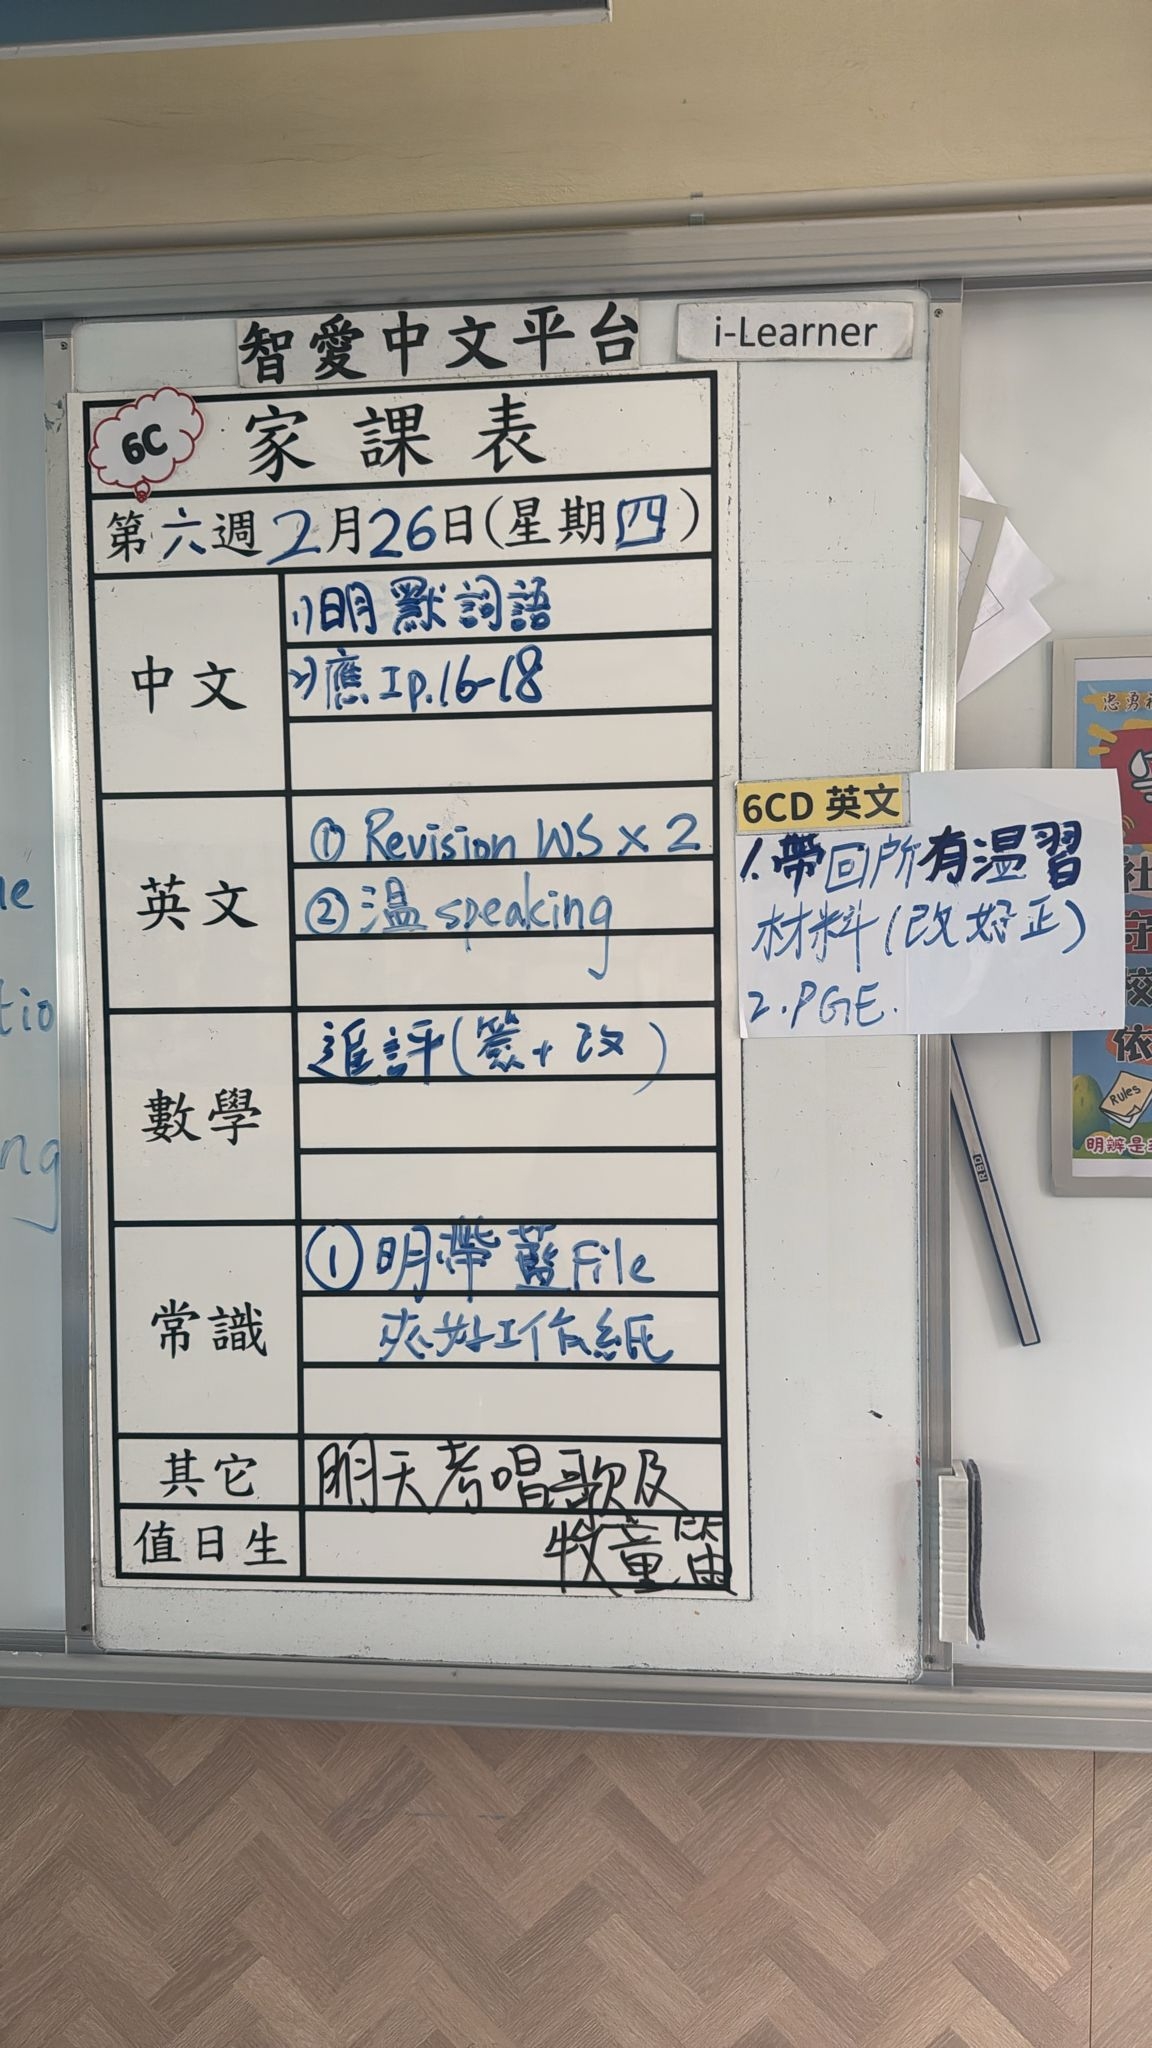 智愛中文平台
i-Learner
6C
家課表
第六週2月26日(星期四)
中文
1)明默詞語
2)應I p.16-18
英文
① Revision WS x 2
② 温 speaking
數學
進評(簽+改)
常識
① 明帶藍File
夾好工作紙
其它
明天考唱歌及
值日生
牧童笛
6CD 英文
1.帶回所有温習
材料(改好正)
2.PGE.
le
tio
ng
忠勇
社
守
校
依
Rules
明辨是
RBD